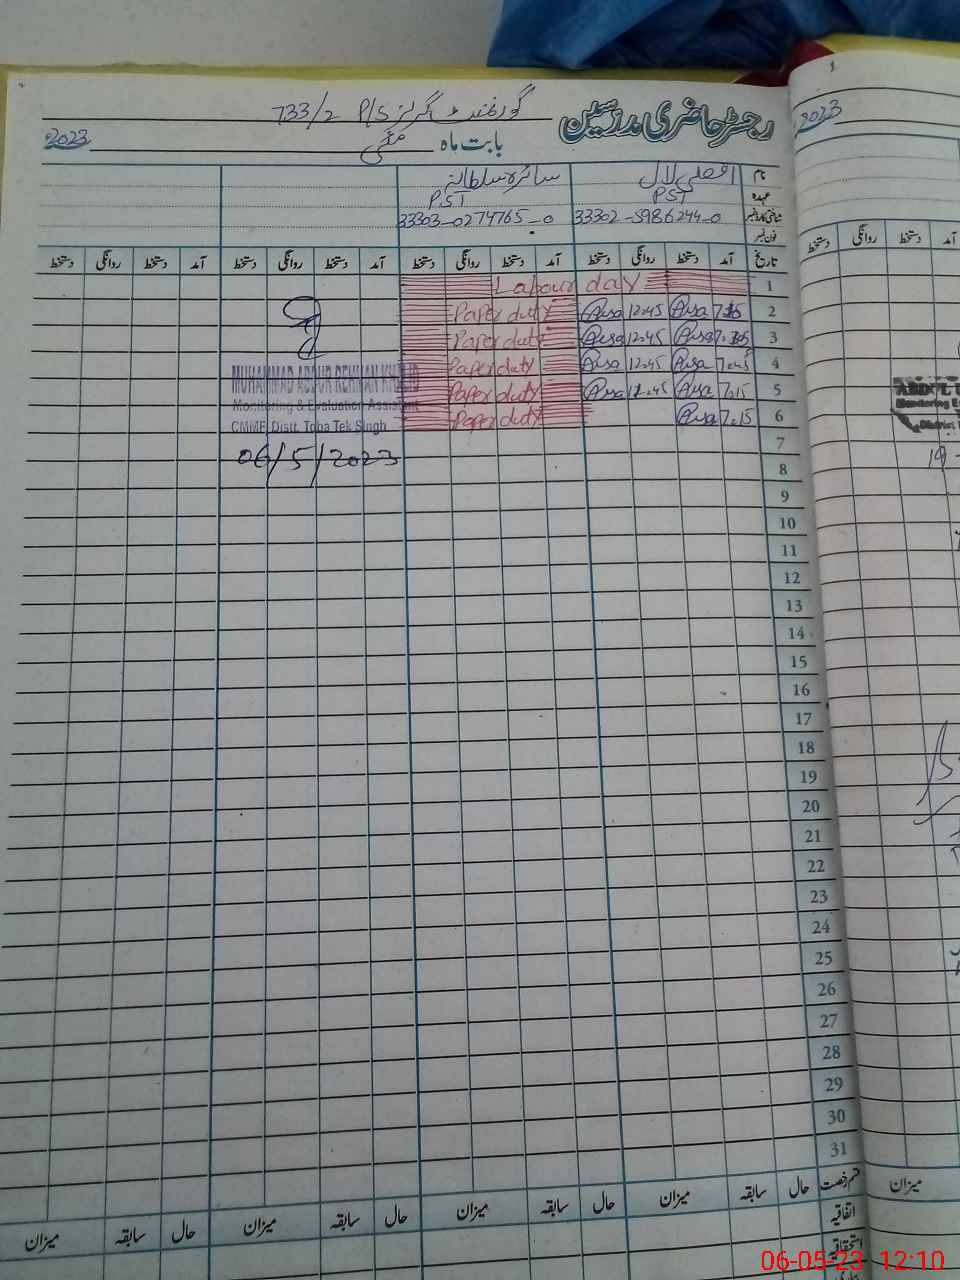 رجسٹر حاضری مدرسین
گورنمنٹ گرلز P/S 733/2
بابت ماہ مئی 2023
نام
سائرہ سلطانہ
عہدہ PST PST
شناختی کارڈ نمبر 33302-5986244-0 33303-0274765-0
فون نمبر
تاریخ آمد دستخط روانگی دستخط آمد دستخط روانگی دستخط آمد دستخط روانگی دستخط آمد دستخط روانگی دستخط
1 Labour day
2 12:45 Paper duty
3 12.45 Paper duty
4 7.45 12.45 Paper duty
5 7.15 12.45 Paper duty
6 7.15 Paper duty
MUHAMMAD ABDUR REHMAN KHALID
Monitoring & Evaluation Assistant
CMMF, Distt. Toba Tek Singh
06/5/2023
7
8
9
10
11
12
13
14
15
16
17
18
19
20
21
22
23
24
25
26
27
28
29
30
31
قسم رخصت حال سابقہ میزان حال سابقہ میزان حال سابقہ میزان حال سابقہ میزان
اتفاقیہ
استحقاقیہ
2023
آمد دستخط روانگی دستخط
میزان
06-05-23 12:10